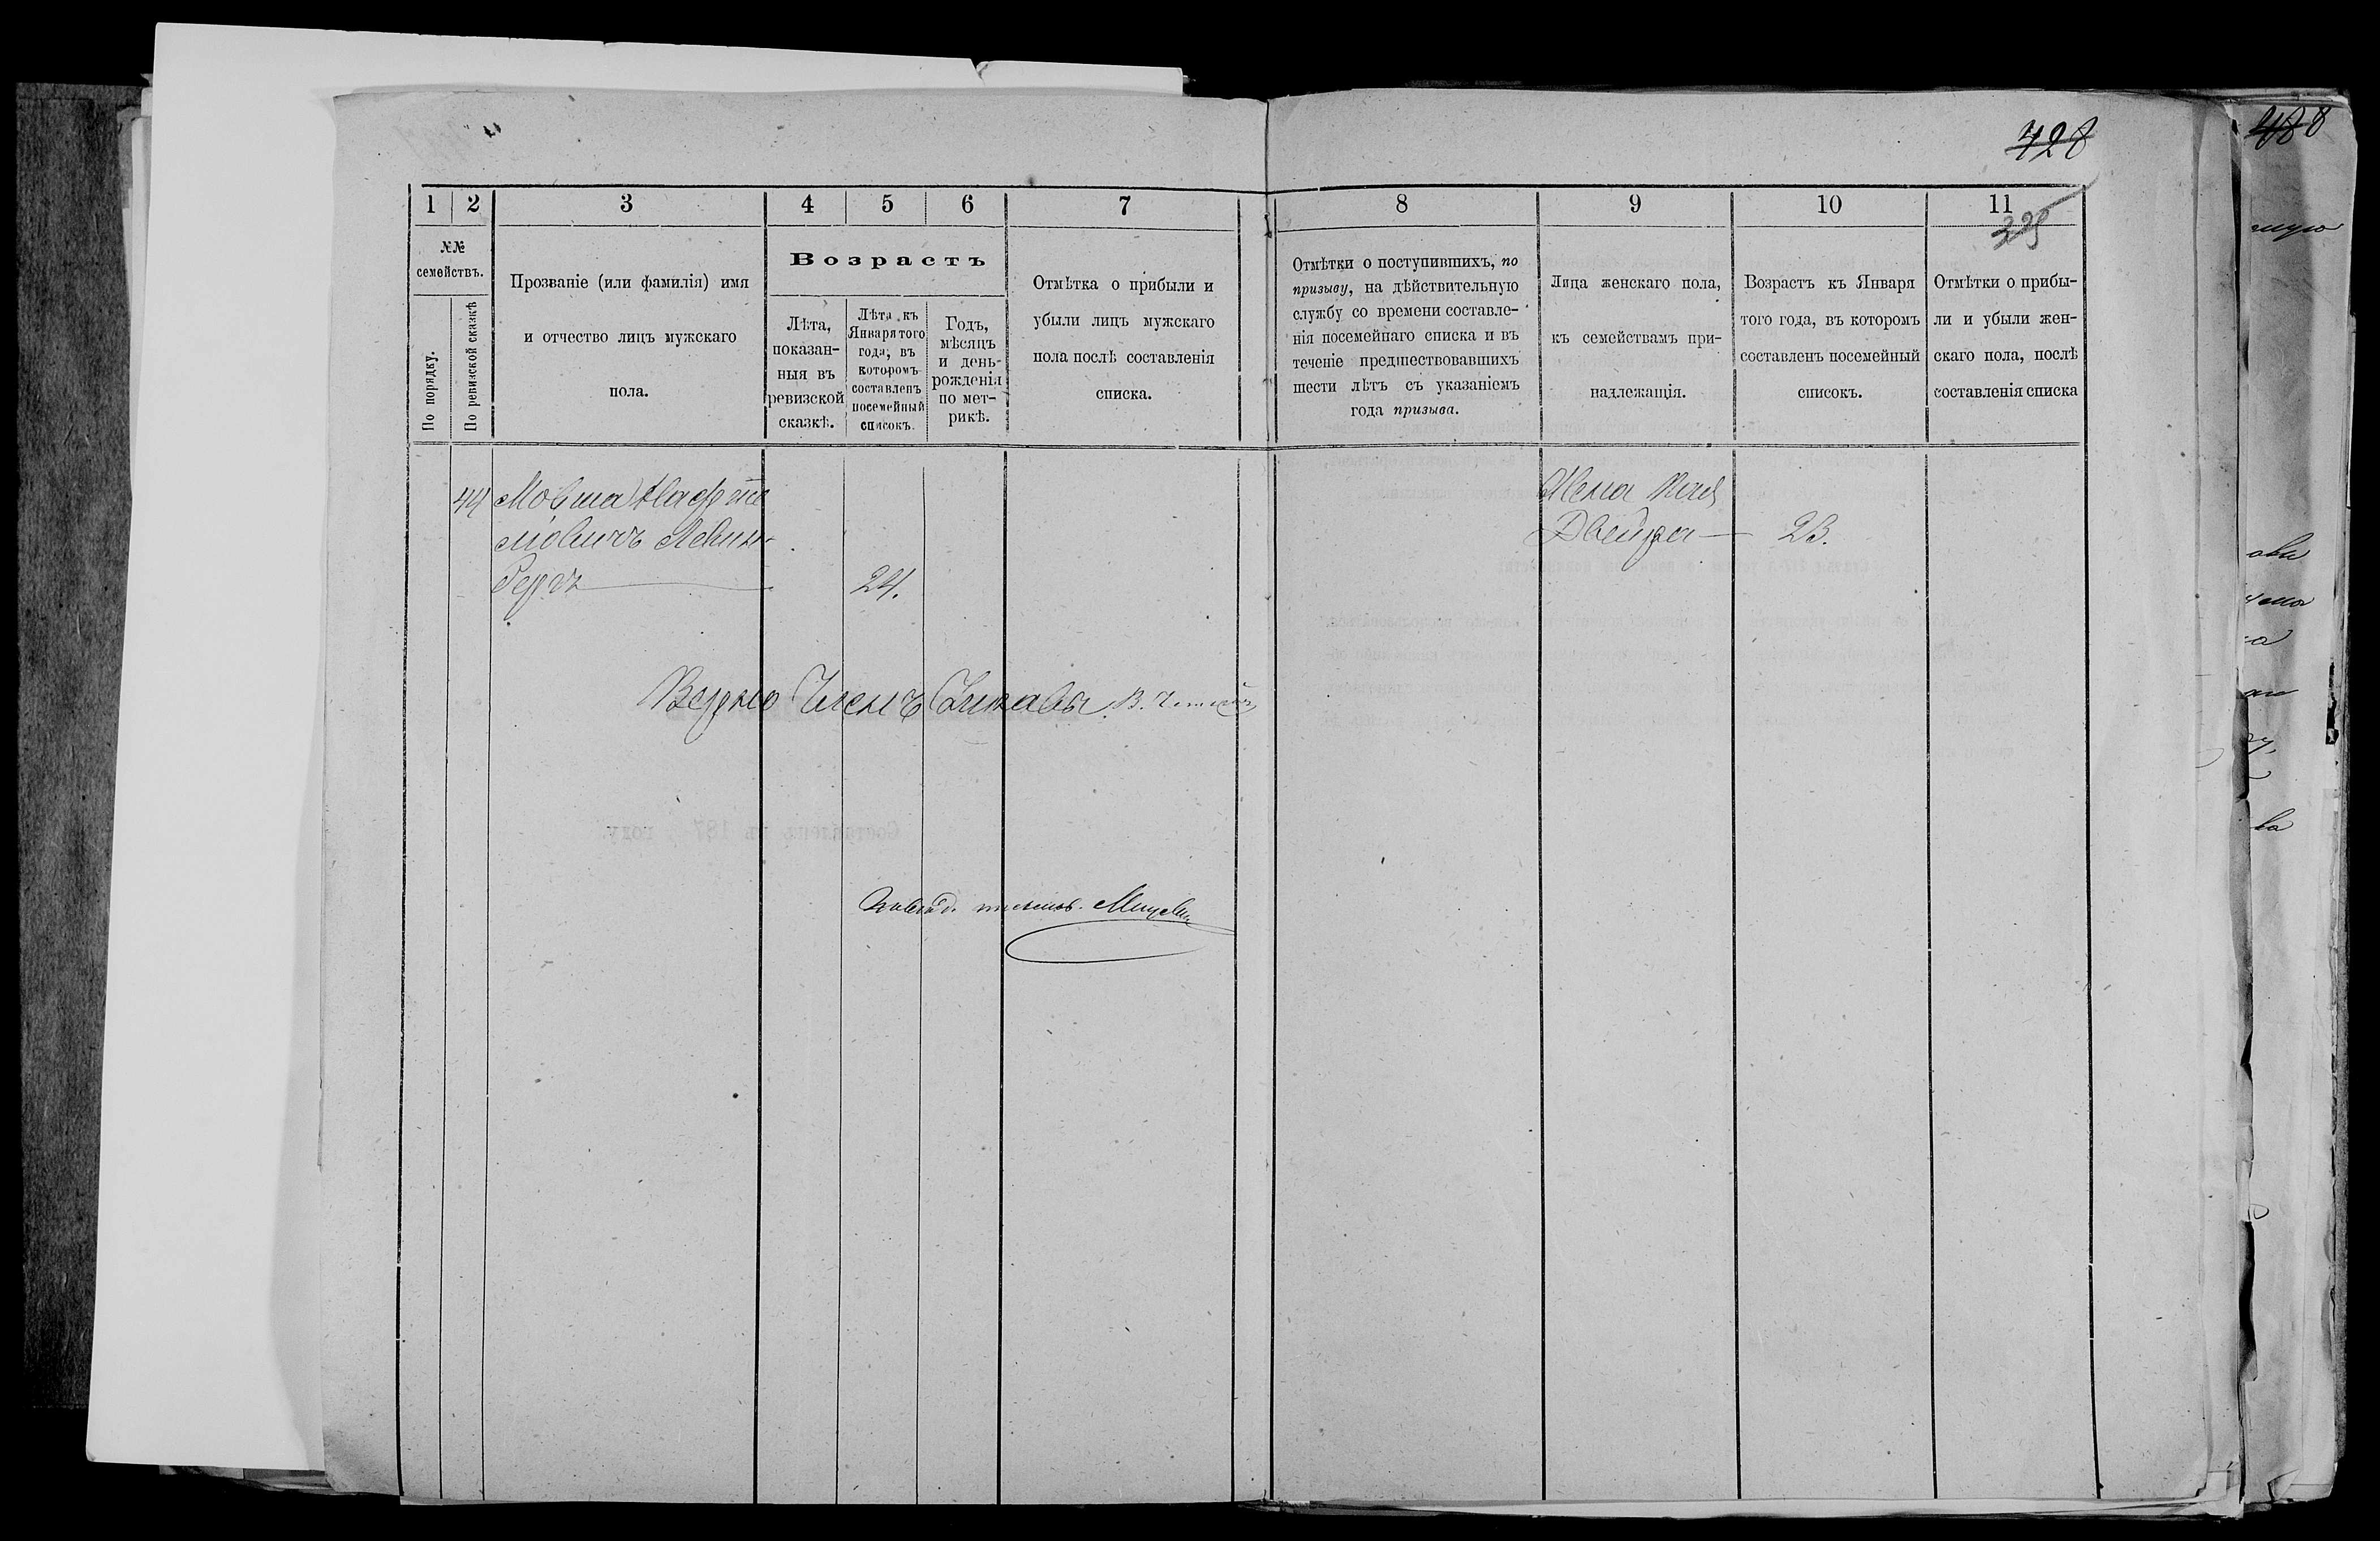 428
488
329
1 2 3 4 5 6 7 8 9 10 11
№№ семействъ.
По порядку.
По ревизской сказкѣ
Прозваніе (или фамилія) имя
и отчество лицъ мужскаго
пола.
Возрастъ
Лѣта,
показан-
ныя въ
ревизской
сказкѣ.
Лѣта къ
Января того
года, въ
которомъ
составленъ
посемейный
списокъ.
Годъ,
мѣсяцъ
и день
рожденія
по мет-
рикѣ.
Отмѣтка о прибыли и
убыли лицъ мужскаго
пола послѣ составленія
списка.
Отмѣтки о поступившихъ, по
призыву, на дѣйствительную
службу со времени составле-
нія посемейнаго списка и въ
теченіе предшествовавшихъ
шести лѣтъ съ указаніемъ
года призыва.
Лица женскаго пола,
къ семействамъ при-
надлежащія.
Возрастъ къ Января
того года, въ которомъ
составленъ посемейный
списокъ.
Отмѣтки о прибы-
ли и убыли жен-
скаго пола, послѣ
составленія списка
44 Мовша Нафте
ліовичъ Левин-
24.
Жена
Двейра — 23.
Вѣрно Членъ Управы